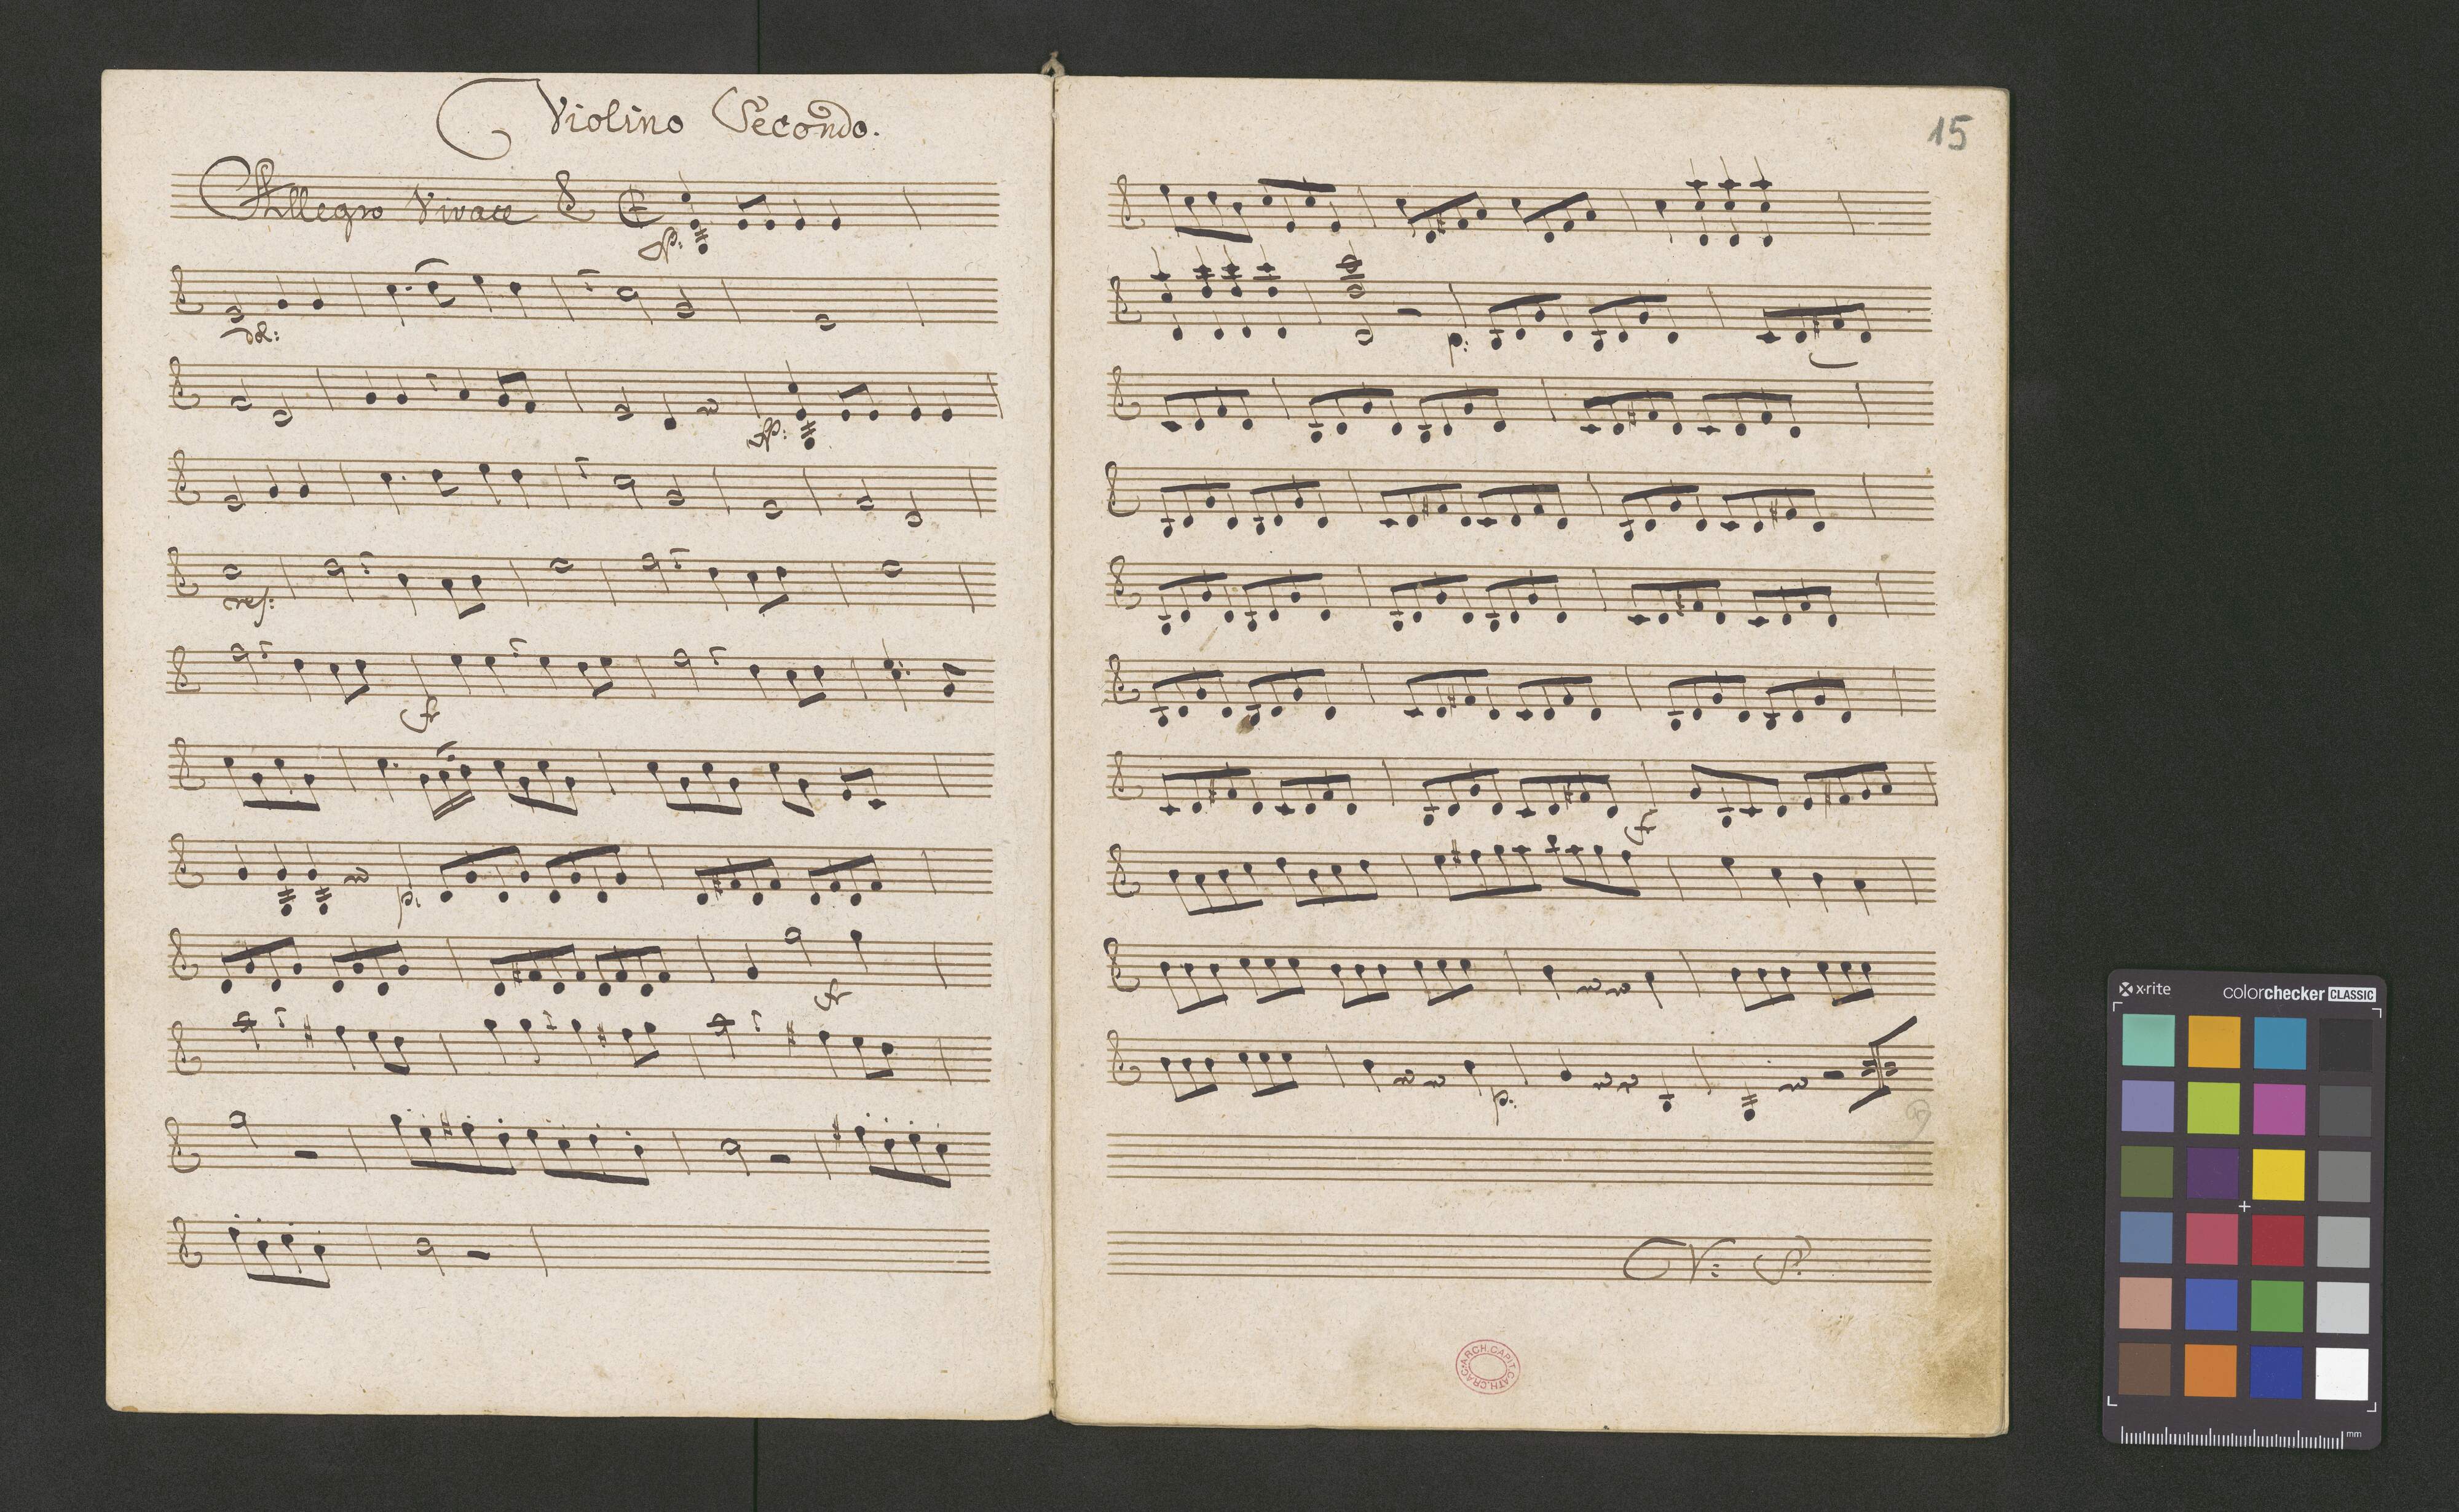 Violino Secondo.
Allegro Vivace
fp:
dol:
fp:
res:
f
p.
f
15
p.
f
p.
V: S:
ARCH.CAPIT.CATH.CRAC.
x-rite
colorchecker CLASSIC
mm